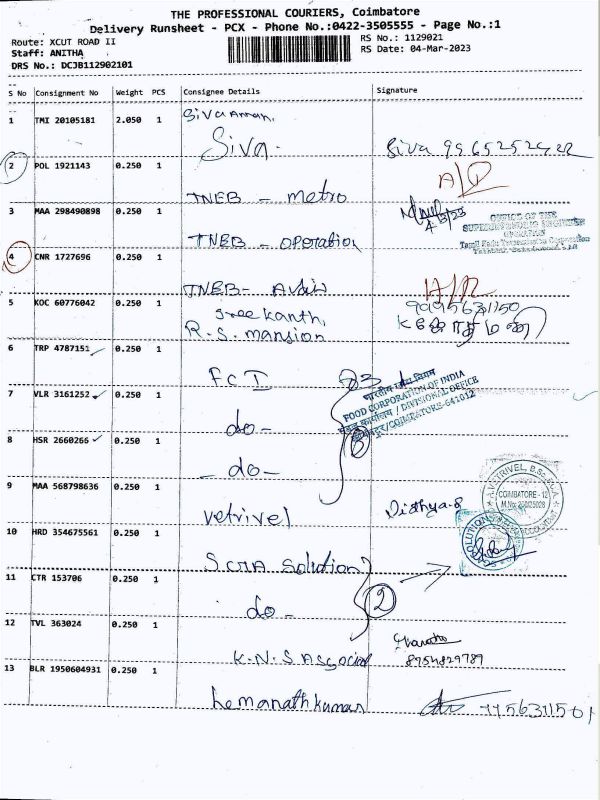 THE PROFESSIONAL COURIERS, Coimbatore
Delivery Runsheet - PCX - Phone No.:0422-3505555 - Page No.:1
Route: XCUT ROAD II
Staff: ANITHA
DRS No.: DCJB112902101
RS No.: 1129021
RS Date: 04-Mar-2023
S No Consignment No Weight PCS Consignee Details Signature
1 TMI 20105181 2.050 1 Siva Amman,
Siva. Siva
2 POL 1921143 0.250 1
TNEB - metro
3 MAA 298490898 0.250 1
4/3/23
OFFICE OF THE
SUPERINTENDING ENGINEER
OPERATION
TNEB - operation
4 CNR 1727696 0.250 1
TNEB-
5 KOC 60776042 0.250 1
Sree kanth,
R.S. mansion
6 TRP 4787151 0.250 1
FCI
भारतीय खाद्य निगम
FOOD CORPORATION OF INDIA
/ DIVISIONAL OFFICE
/COIMBATORE-641012
7 VLR 3161252 0.250 1
do-
3
8 HSR 2660266 0.250 1
- do-
9 MAA 568798636 0.250 1
vetrivel Vidhya.S
COIMBATORE - 12
10 HRD 354675561 0.250 1
Solution
11 CTR 153706 0.250 1
do - 2
12 TVL 363024 0.250 1
K.N.S Associat
8754829789
13 BLR 1950604931 0.250 1
hemanathkumar